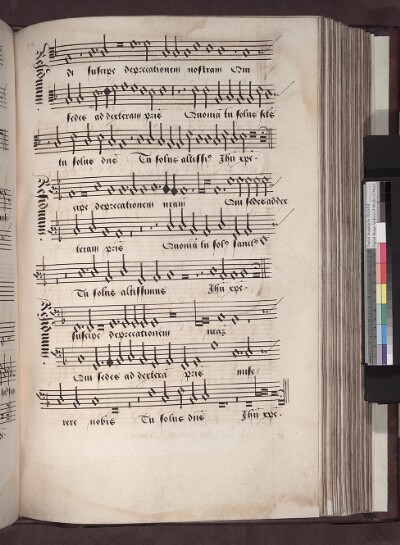 di suscipe deprecationem nostram Qui
sedes ad dexteram pris Quonia tu solus scts
tu solus dns Tu solus altissis Jhu xpe.
cipe deprecationem nram Qui sedes ad dex
teram pris Quonia tu sol9 sanct9
Tu solus altissimus Jhu xpe.
suscipe deprecationem nraz
Qui sedes ad dextera pris mise
rere nobis Tu solus dns Jhu xpe.